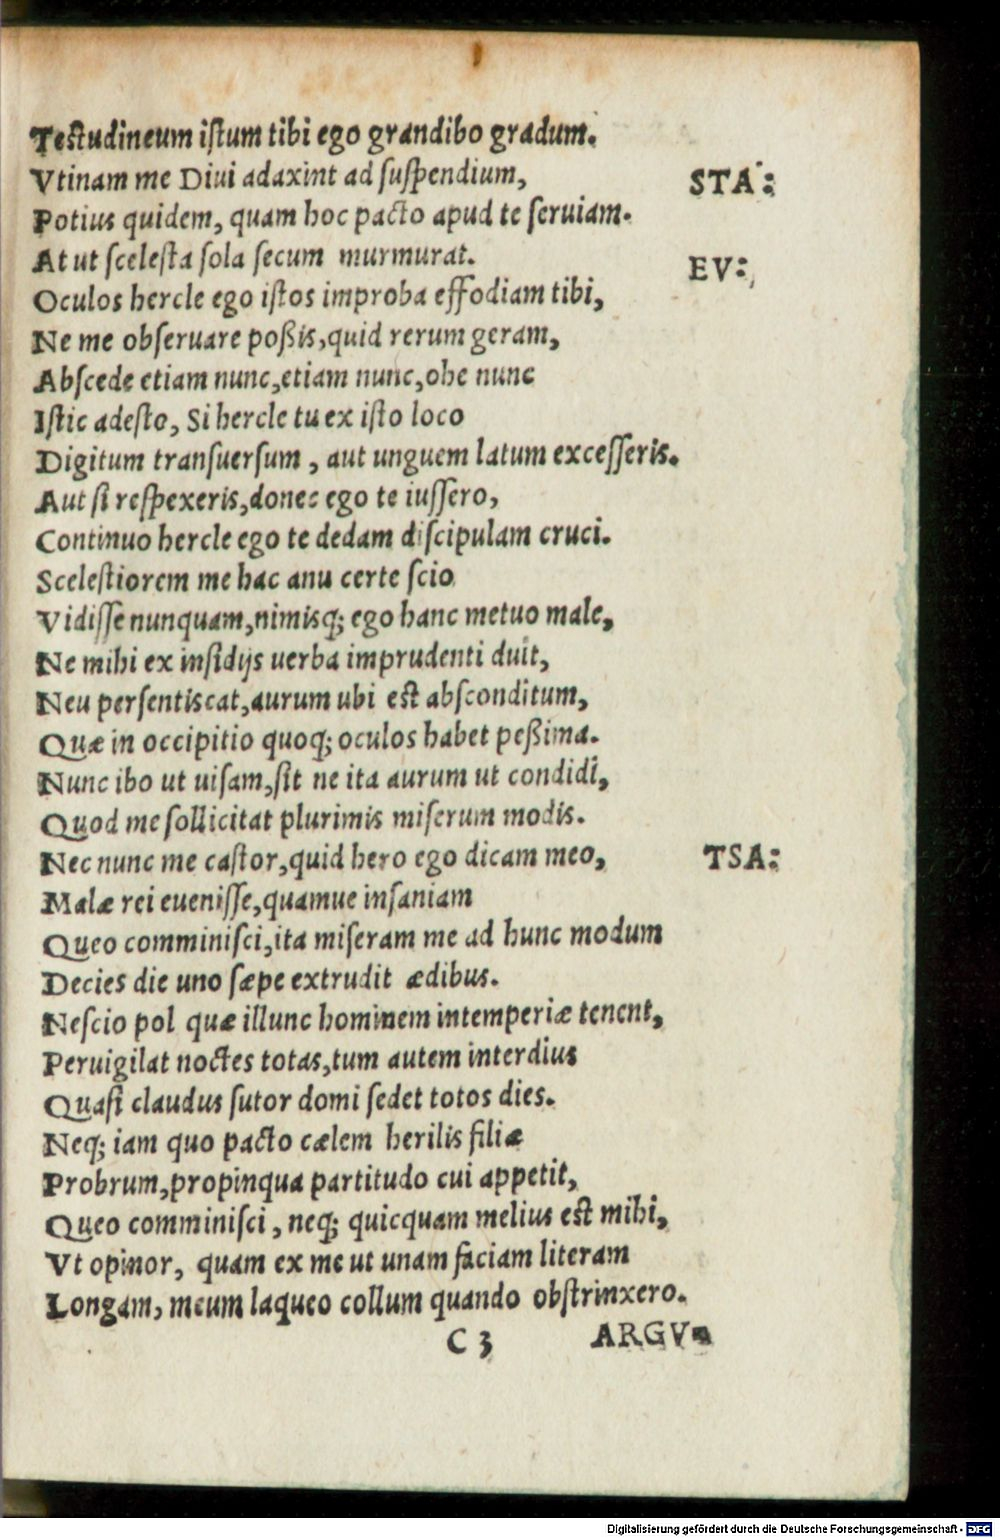 Testudineum iſtum tibi ego grandibo gradum.
Vtinam me Diui adaxint ad ſuſpendium, STA:
Potius quidem, quam hoc pacto apud te ſeruiam.
At ut ſceleſta ſola ſecum murmurat. EV:
Oculos hercle ego iſtos improba effodiam tibi,
Ne me obſeruare poßis,quid rerum geram,
Abſcede etiam nunc,etiam nunc,ohe nunc
Iſtic adeſto, Si hercle tu ex iſto loco
Digitum tranſuerſum , aut unguem latum exceſſeris.
Aut ſi reſpexeris,donec ego te iuſſero,
Continuo hercle ego te dedam diſcipulam cruci.
Sceleſtiorem me hac anu certe ſcio
Vidiſſe nunquam,nimisq; ego hanc metuo male,
Ne mihi ex inſidijs uerba imprudenti duit,
Neu perſentiscat,aurum ubi est abſconditum,
Quæ in occipitio quoq; oculos habet peßima.
Nunc ibo ut uiſam,ſit ne ita aurum ut condidi,
Quod me ſollicitat plurimis miſerum modis.
Nec nunc me caſtor,quid hero ego dicam meo, TSA:
Malæ rei eueniſſe,quamue inſaniam
Queo comminiſci,ita miſeram me ad hunc modum
Decies die uno ſæpe extrudit ædibus.
Neſcio pol quæ illunc hominem intemperiæ tenent,
Peruigilat noctes totas,tum autem interdius
Quaſi claudus ſutor domi ſedet totos dies.
Neq; iam quo pacto cælem herilis filiæ
Probrum,propinqua partitudo cui appetit,
Queo comminiſci , neq; quicquam melius est mihi,
Vt opinor, quam ex me ut unam faciam literam
Longam, meum laqueo collum quando obſtrinxero.
C 3 ARGV-
Digitalisierung gefördert durch die Deutsche Forschungsgemeinschaft - DFG